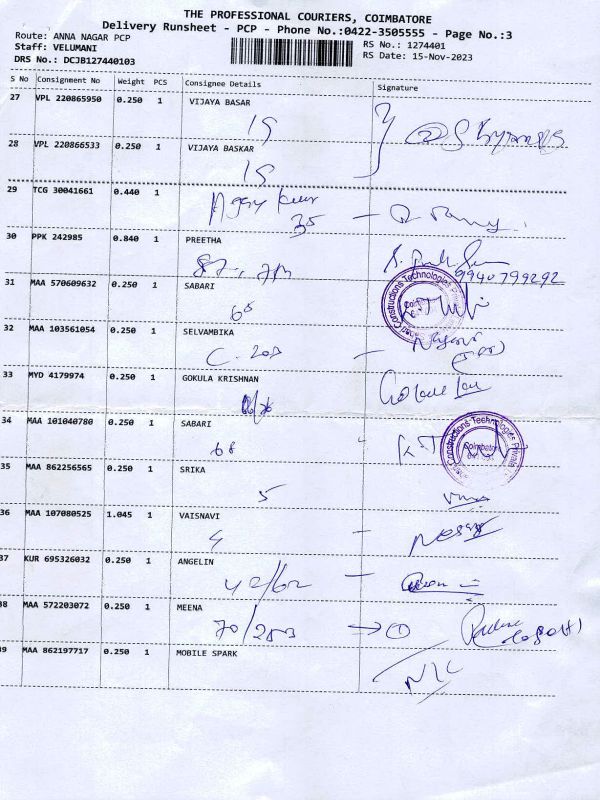 THE PROFESSIONAL COURIERS, COIMBATORE
Delivery Runsheet - PCP - Phone No.:0422-3505555 - Page No.:3
Route: ANNA NAGAR PCP
Staff: VELUMANI
DRS No.: DCJB127440103
RS No.: 1274401
RS Date: 15-Nov-2023
S No Consignment No Weight PCS Consignee Details Signature
27 VPL 220865950 0.250 1 VIJAYA BASAR
15
28 VPL 220866533 0.250 1 VIJAYA BASKAR
15
29 TCG 30041661 0.440 1
35
30 PPK 242985 0.840 1 PREETHA
9940799292
31 MAA 570609632 0.250 1 SABARI
68
32 MAA 103561054 0.250 1 SELVAMBIKA
C. 203
33 MYD 4179974 0.250 1 GOKULA KRISHNAN
34 MAA 101040780 0.250 1 SABARI
68
Coimbatore
35 MAA 862256565 0.250 1 SRIKA
5
36 MAA 107080525 1.045 1 VAISNAVI
4
37 KUR 695326032 0.250 1 ANGELIN
42/62
38 MAA 572203072 0.250 1 MEENA
70/253
39 MAA 862197717 0.250 1 MOBILE SPARK
N/C